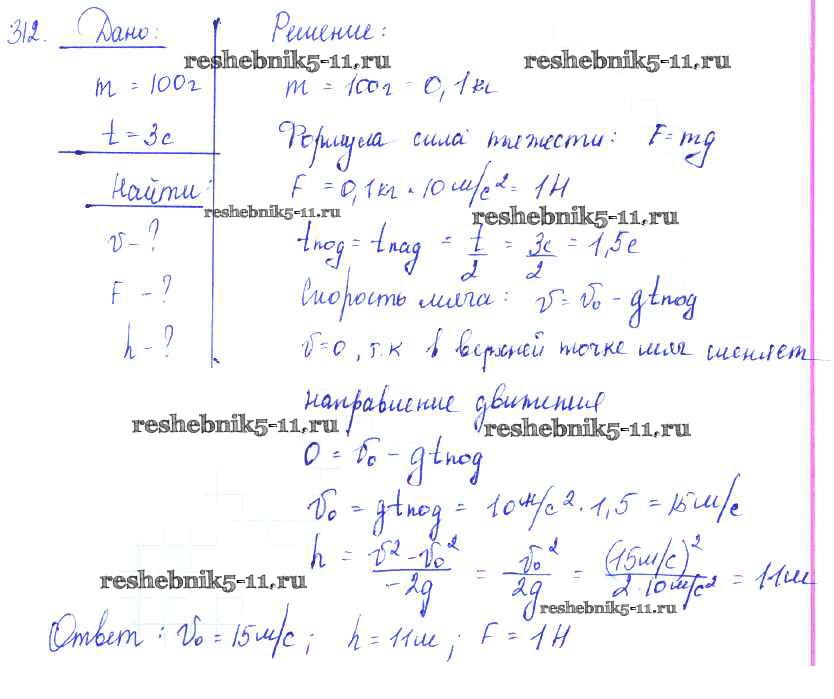 312. Дано: Решение:
reshebnik5-11.ru reshebnik5-11.ru
m = 100г m = 100г = 0,1кг
t = 3с Формула сила тяжести: F = mg
Найти: F = 0,1кг · 10м/с² = 1Н
reshebnik5-11.ru reshebnik5-11.ru
v - ? tпод = tпад = t/2 = 3с/2 = 1,5с
F - ? Скорость мяча: v = v₀ - gtпод
h - ? v=0, т.к в верхней точке мяч меняет
направление движения
reshebnik5-11.ru reshebnik5-11.ru
0 = v₀ - gtпод
v₀ = gtпод = 10м/с² · 1,5 = 15м/с
h = v² - v₀²/-2g = v₀²/2g = (15м/с)²/2·10м/с² = 11м
reshebnik5-11.ru reshebnik5-11.ru
Ответ: v₀ = 15м/с; h = 11м; F = 1Н